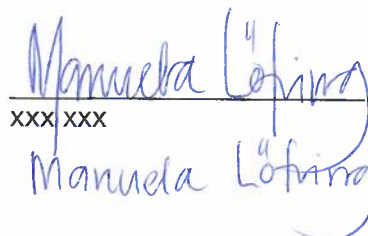 Manuela Löfving
xxx xxx
Manuela Löfving